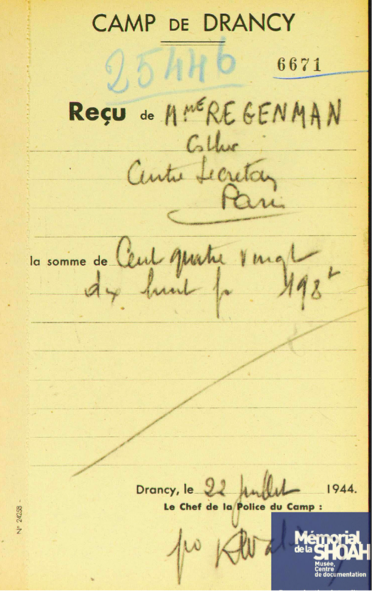 CAMP DE DRANCY
25446
6671
Reçu de Mme REGENMAN
Esther
Centre Secretan
Paris
la somme de Cent quatre vingt
dix huit fr 198 f
Drancy, le 22 juillet 1944.
Le Chef de la Police du Camp :
po
N° 24258 -
Mémorial
de la SHOAH
Musée,
Centre
de documentation